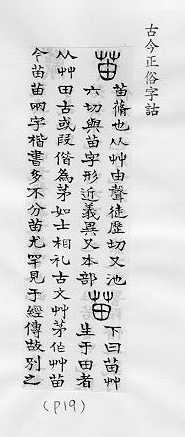 古今正俗字詁
苖
苖蓨也从艸由聲徒歷切又池
六切與苗字形近義異又本部
苗
下曰苗艸
生于田者
从艸田古或叚借為茅如士相礼古文艸茅作艸苗
今苖苗兩字楷書多不分苖尤罕見于經傳故別之
(p19)